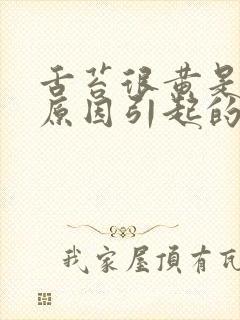 舌苔很黄是
原因引起的
我家屋頂有瓦